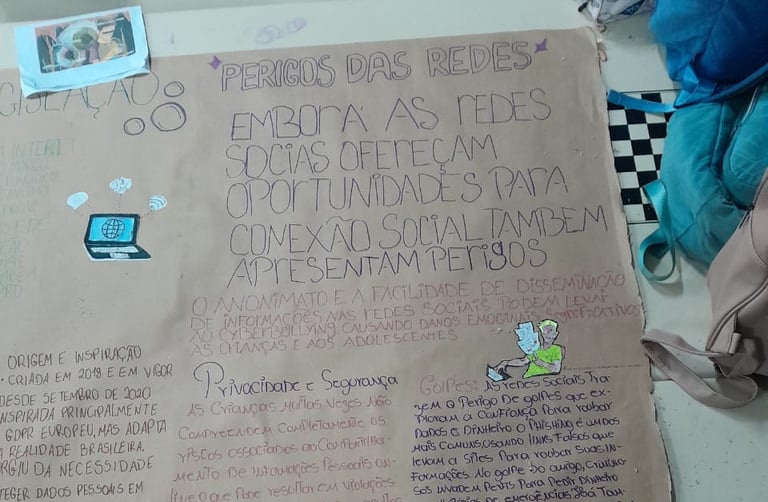 GISLAÇÃO
A INTERNET
ORIGEM E INSPIRAÇÃO
• CRIADA EM 2018 E EM VIGOR
DESDE SETEMBRO DE 2020
INSPIRADA PRINCIPALMENTE
GDPR EUROPEU, MAS ADAPTA
A REALIDADE BRASILEIRA.
RGIU DA NECESSIDADE
TEGER DADOS PESSOAIS EM
PERIGOS DAS REDES
EMBORA AS REDES
SOCIAS OFEREÇAM
OPORTUNIDADES PARA
CONEXÃO SOCIAL TAMBEM
APRESENTAM PERIGOS
O ANONIMATO E A FACILIDADE DE DISSEMINAÇÃO
DE INFORMAÇÕES NAS REDES SOCIAIS PODEM LEVAR
AO CYBERBULLYING, CAUSANDO DANOS EMOCINAIS SIGNIFICATIVOS
AS CRIANÇAS E AOS ADOLESCENTES
Privacidade e Segurança
AS CRIANÇAS MUITAS VEZES NÃO
COMPREENDEM COMPLETAMENTE OS
RISCOS ASSOCIADOS AO COMPARTILHA-
MENTO DE INFORMAÇÕES PESSOAIS ON-
LINE O QUE PODE RESULTAR EM VIOLAÇÕES
GOLPES: AS REDES SOCIAIS TRA-
ZEM O PERIGO DE GOLPES QUE EX-
PLORAM A CONFIANÇA PARA ROUBAR
DADOS E DINHEIRO. O PHISHING É UM DOS
MAIS COMUNS, USANDO LINKS FALSOS QUE
LEVAM A SITES PARA ROUBAR SUAS IN-
FORMAÇÕES. NO GOLPE DO AMIGO, CRIMINO-
SOS INVADEM PERFIS PARA PEDIR DINHEIRO
DE EMERGÊNCIAS